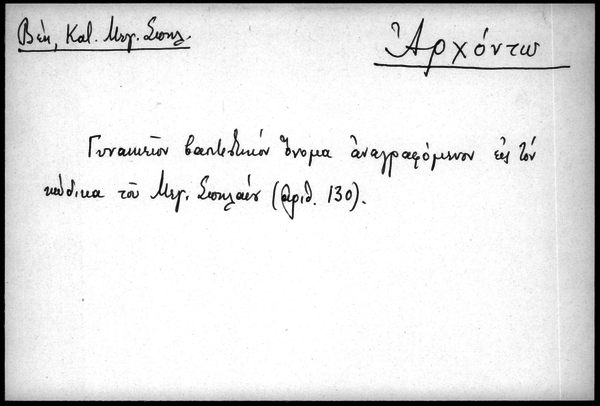 Βέη, Καλ. Μεγ. Σπηλ.
Ἀρχόντω
Γυναικεῖον βαπτιστικόν ὄνομα ἀναγραφόμενον εἰς τόν
κώδικα τοῦ Μεγ. Σπηλαίου (ἀριθ. 130).